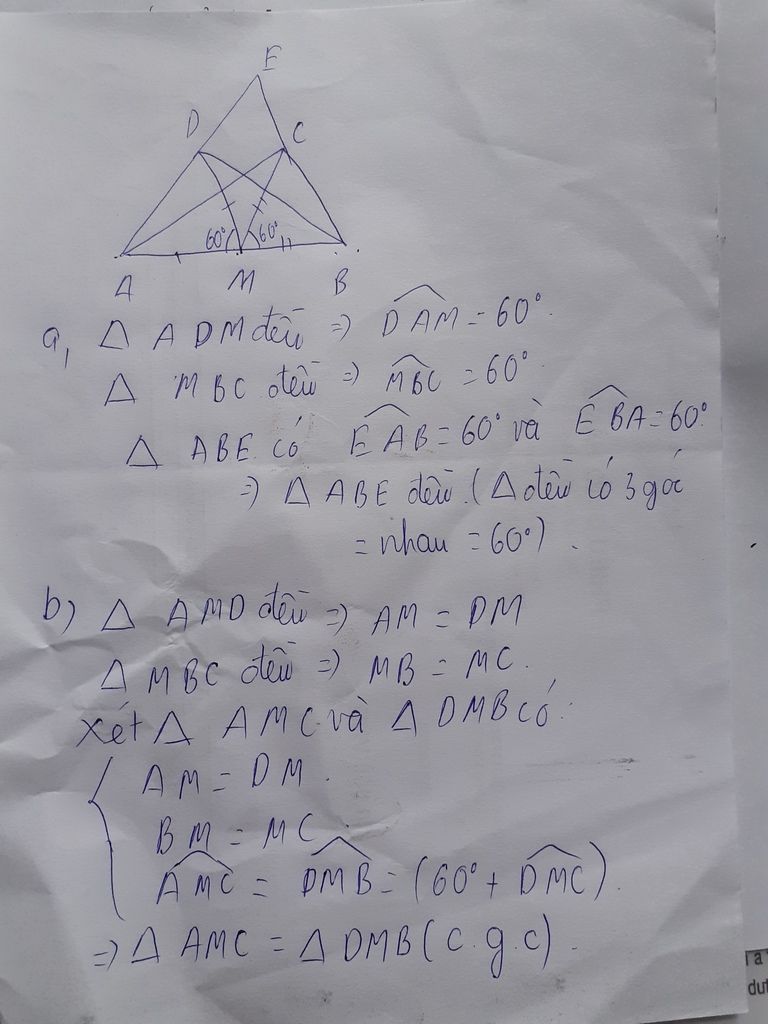 E
D
C
60°
60°
A
M
B
a, Δ ADM đều => \widehat{DAM} = 60°.
Δ MBC đều => \widehat{MBC} = 60°
Δ ABE có \widehat{EAB} = 60° và \widehat{EBA} = 60°
=> Δ ABE đều. (Δ đều có 3 góc
= nhau = 60°).
b) Δ AMD đều => AM = DM
Δ MBC đều => MB = MC.
Xét Δ AMC và Δ DMB có:
{ AM = DM.
BM = MC.
\widehat{AMC} = \widehat{DMB} = (60° + \widehat{DMC}).
=> Δ AMC = Δ DMB (c.g.c).